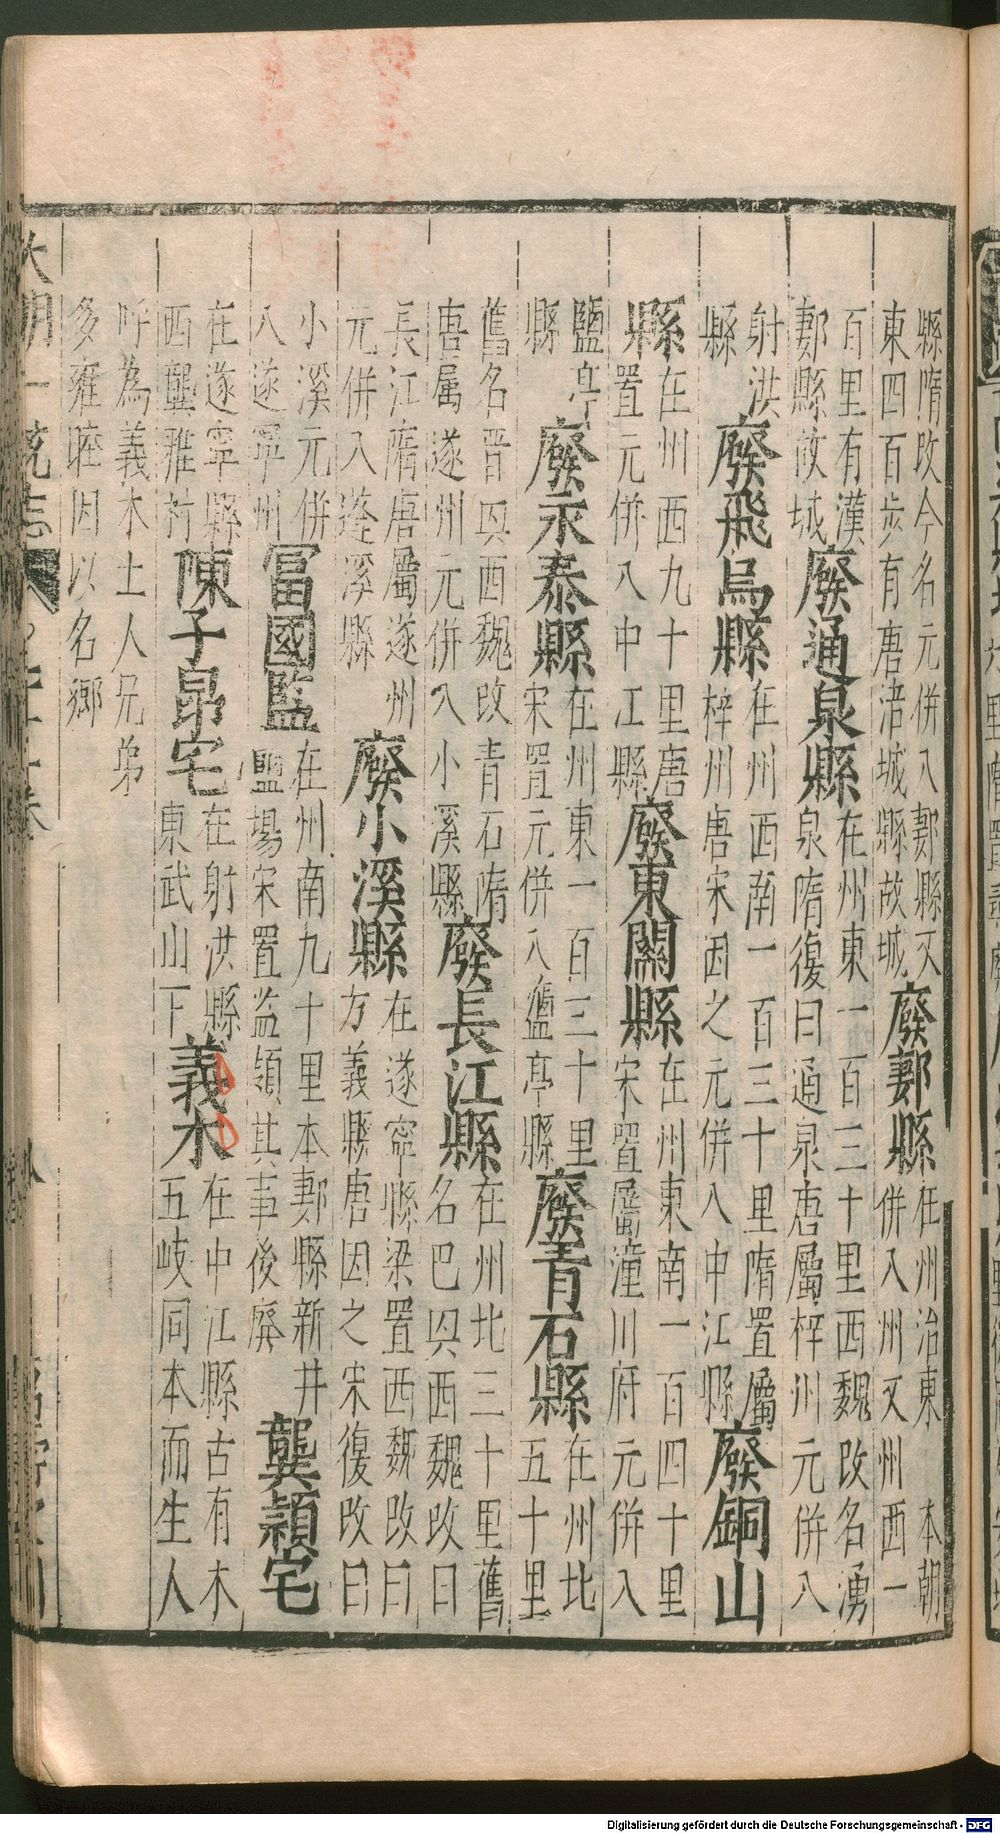 縣隋改今名元併入郪縣又
東四百步有唐涪城縣故城
廢郪縣
在州治東 本朝
併入州又州西一
百里有漢
郪縣故城
廢通泉縣
在州東一百三十里西魏改名湧
泉隋復曰通泉唐屬梓州元併入
射洪
縣
廢飛烏縣
在州西南一百三十里隋置屬
梓州唐宋因之元併入中江縣
廢銅山
縣
在州西九十里唐
置元併入中江縣
廢東關縣
在州東南一百四十里
宋置屬潼川府元併入
鹽亭
縣
廢永泰縣
在州東一百三十里
宋置元併入鹽亭縣
廢青石縣
在州北
五十里
舊名晉興西魏改青石隋
唐属遂州元併入小溪縣
廢長江縣
在州北三十里舊
名巴興西魏改曰
長江隋唐屬遂州
元併入蓬溪縣
廢小溪縣
在遂寧縣梁置西魏改曰
方義縣唐因之宋復改曰
小溪元併
入遂寧州
富國監
在州南九十里本郪縣新井
鹽場宋置监領其事後廢
龔頴宅
在遂寧縣
西龔雅村
陳子昂宅
在射洪縣
東武山下
義木
在中江縣古有木
五岐同本而生人
呼為義木土人兄弟
多雍睦因以名鄉
大明一統志
Digitalisierung gefördert durch die Deutsche Forschungsgemeinschaft - DFG